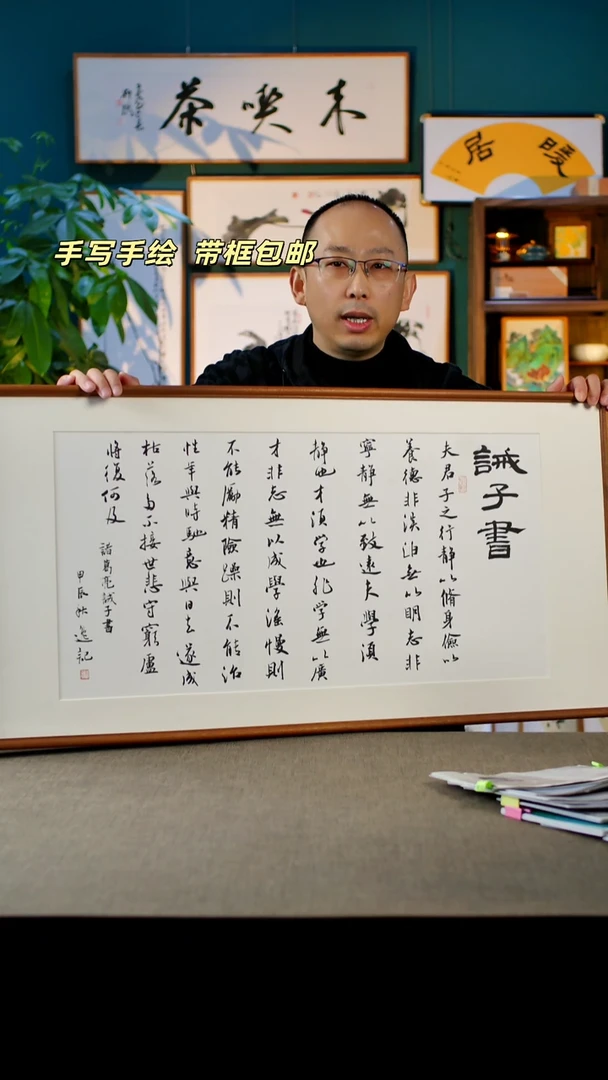 来喫茶
暖居
手写手绘 带框包邮
誡子書
夫君子之行静以脩身儉以
養德非淡泊無以明志非
寧静無以致遠夫學須
静也才須学也非学無以廣
才非志無以成學滛慢則
不能勵精險躁則不能治
性年與時馳意與日去遂成
枯落多不接世悲守窮廬
將復何及
諸葛亮誡子書
甲辰秋逸記